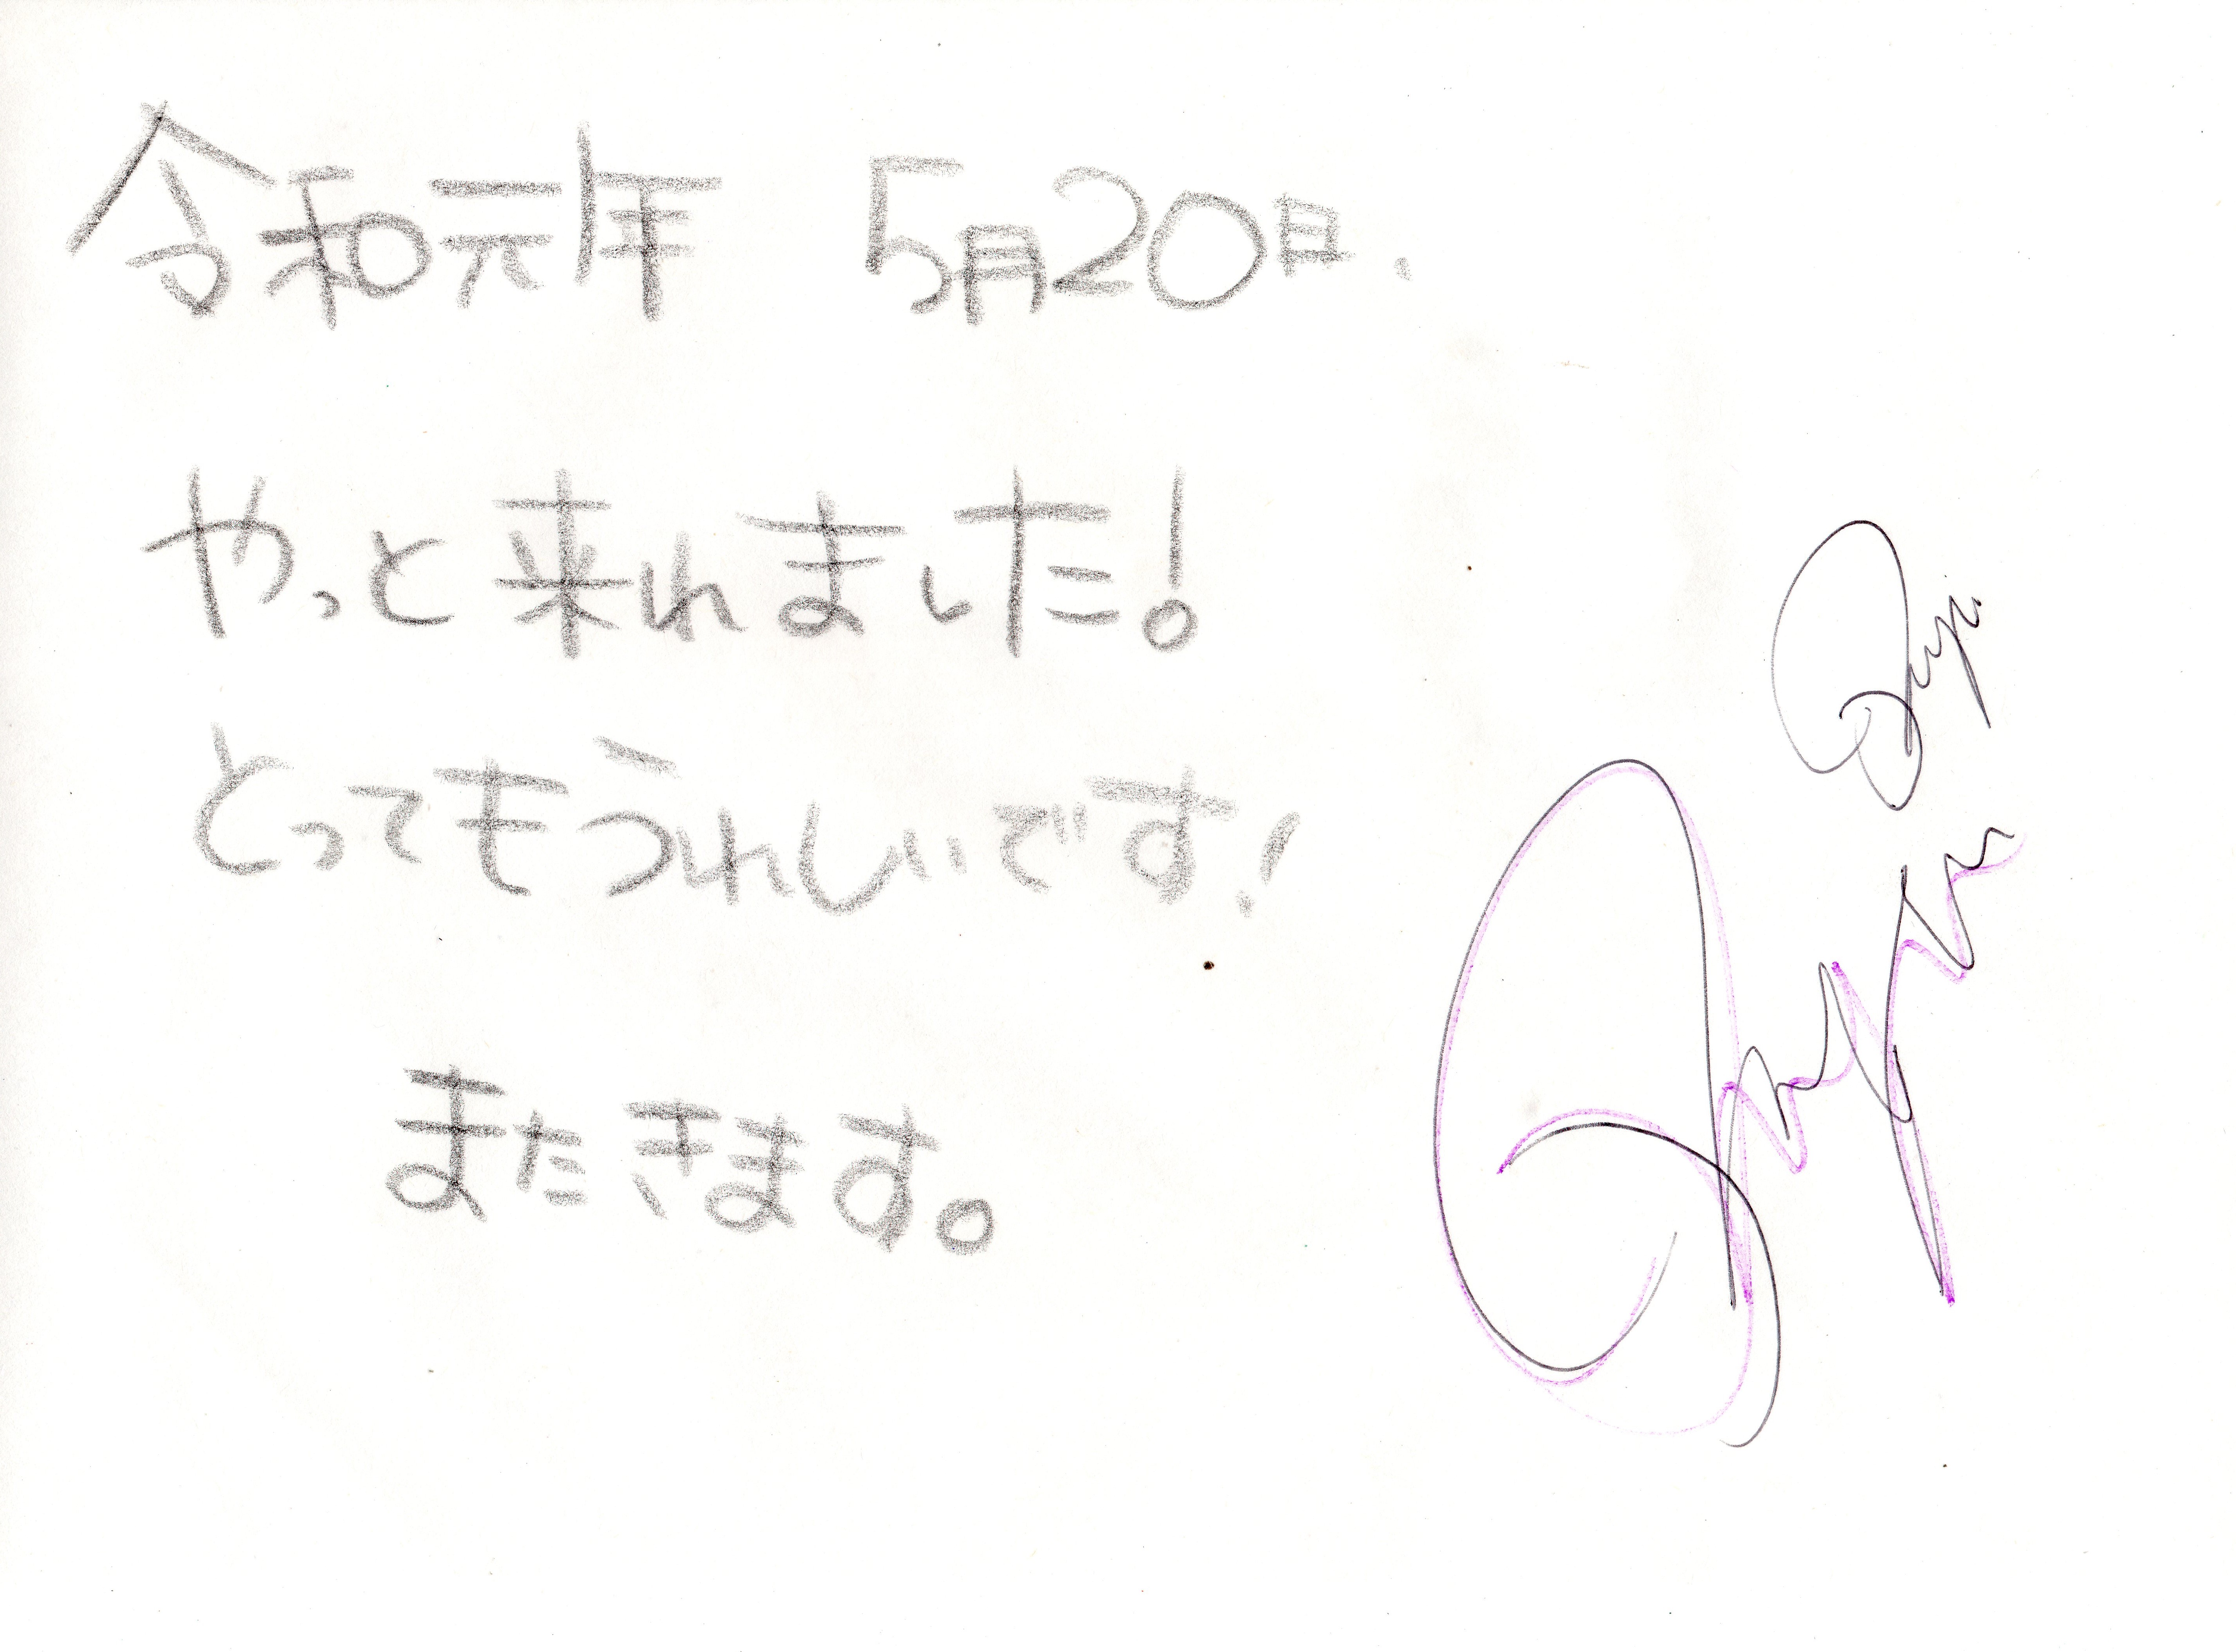 令和元年 5月20日.
やっと来れました!
とってもうれしいです!
またきます。